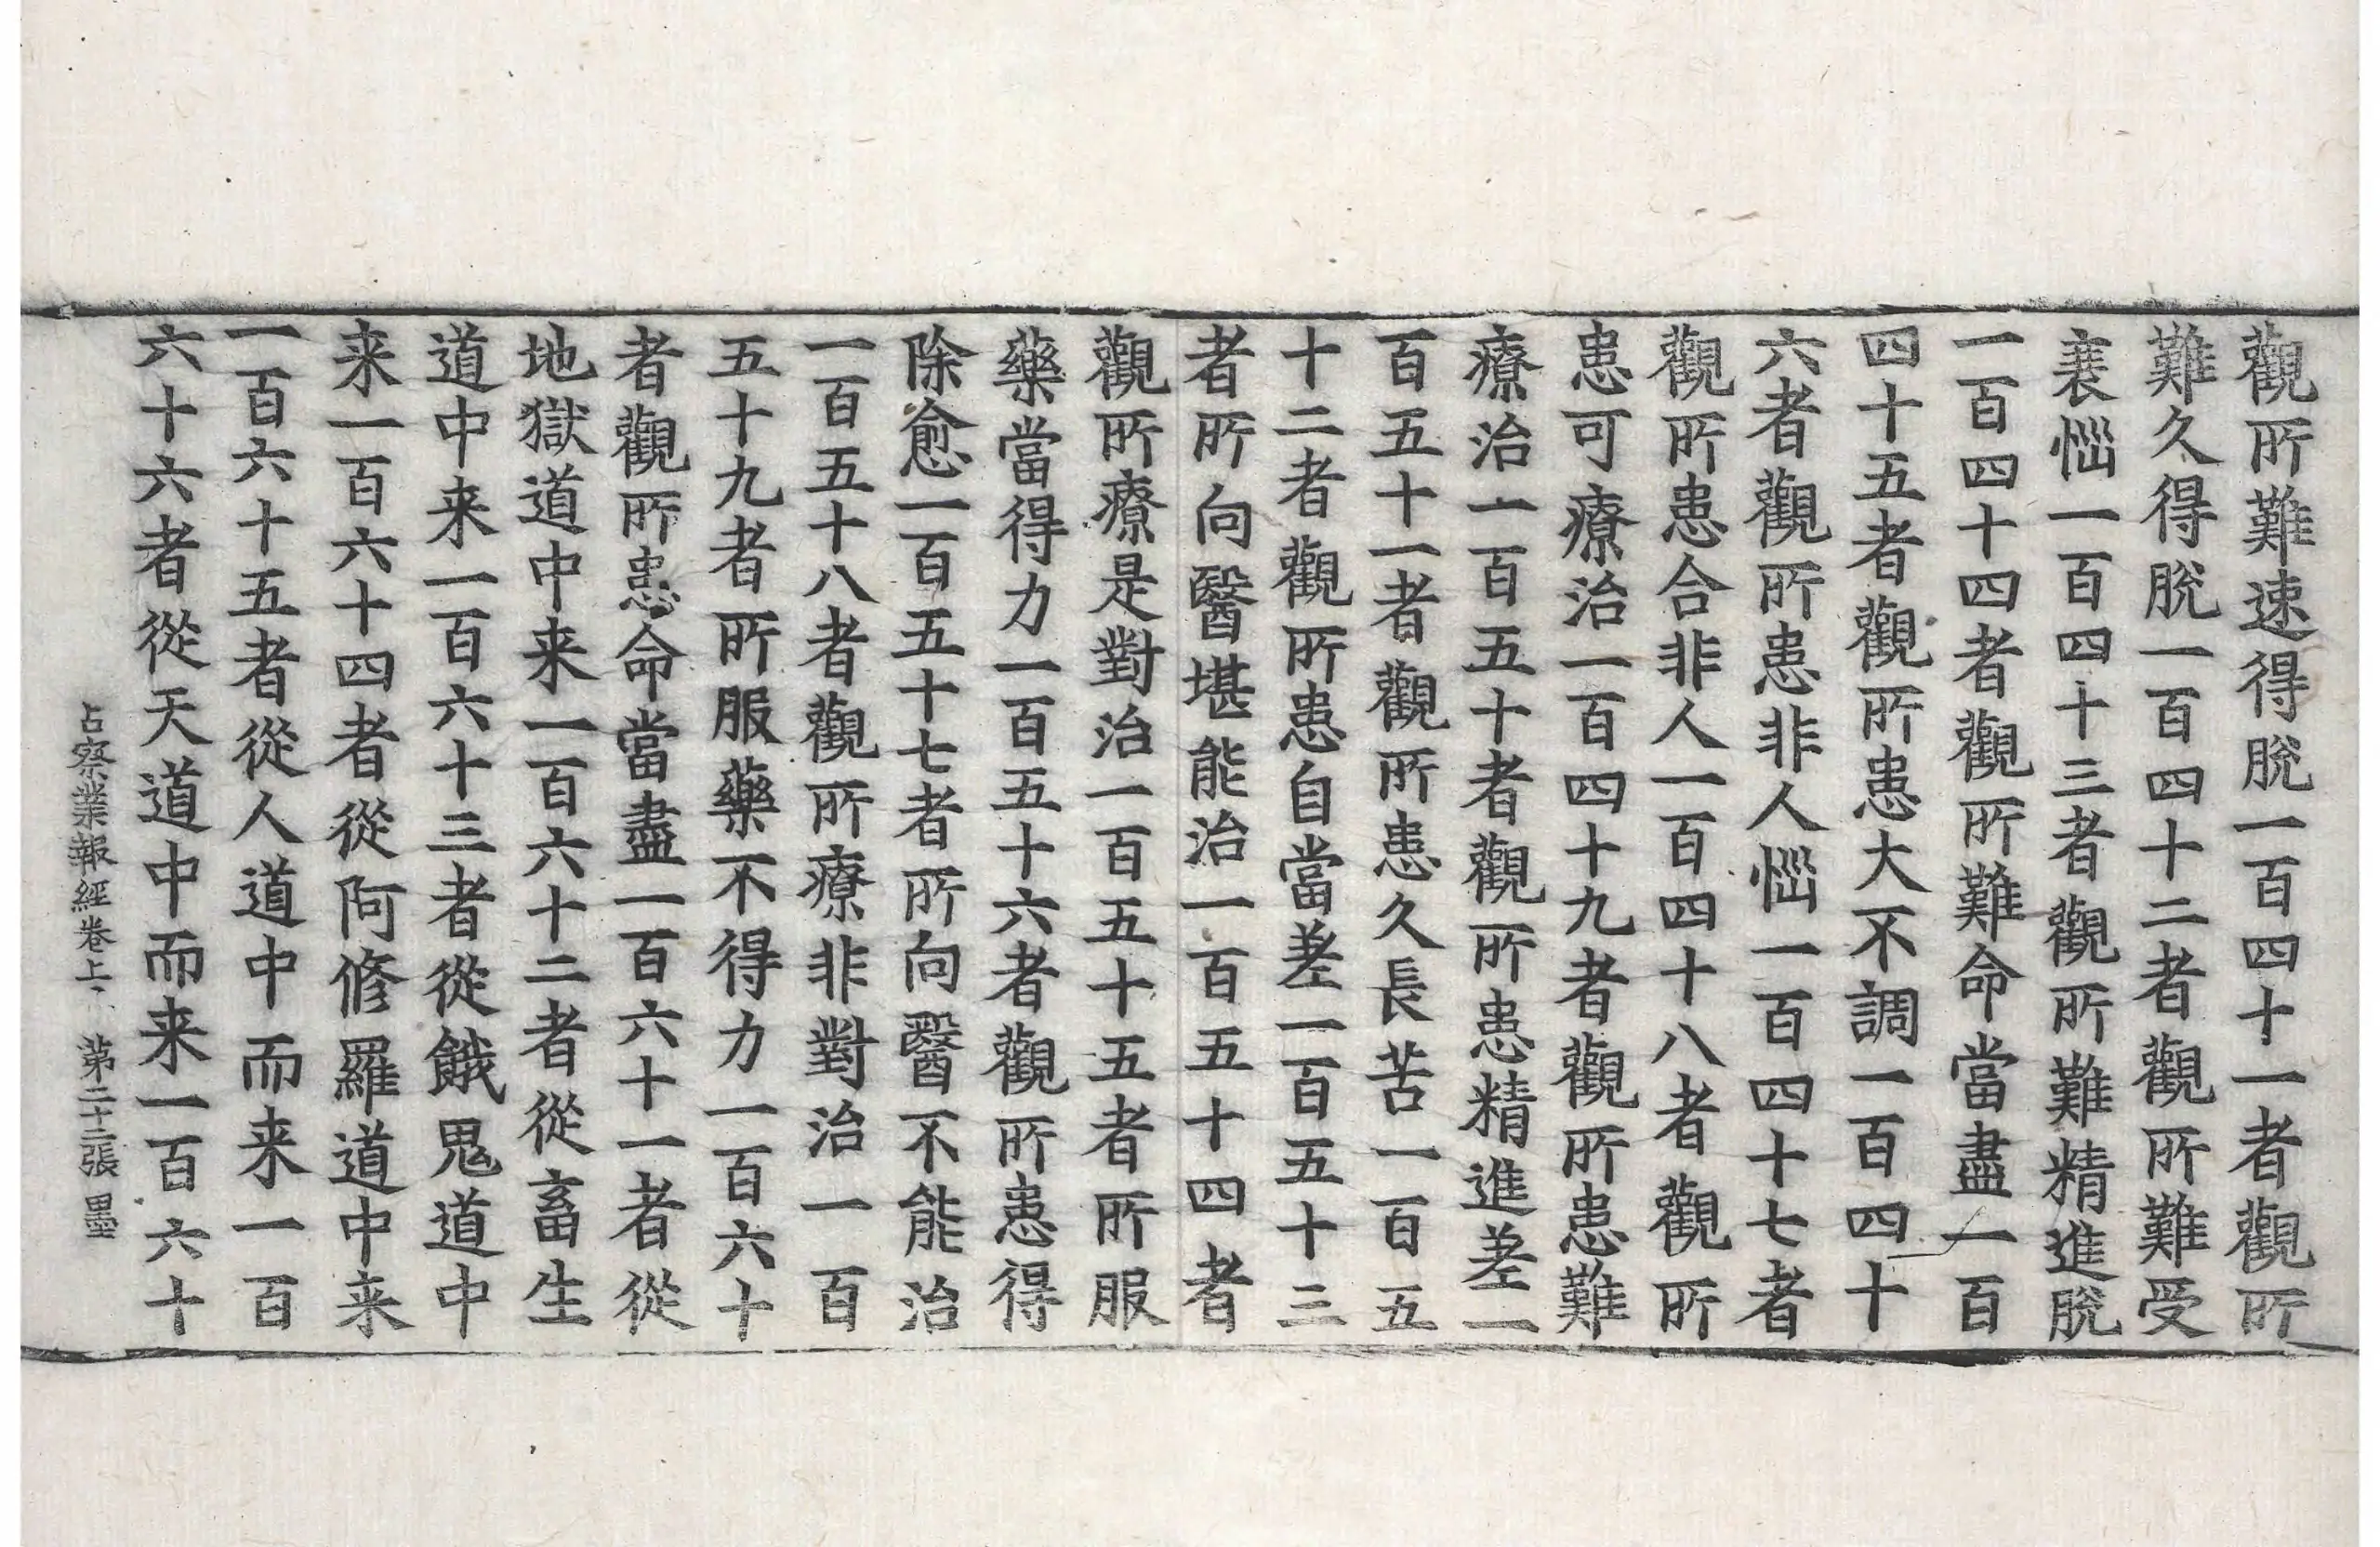 觀所難速得脫一百四十一者觀所
難久得脫一百四十二者觀所難受
衰惱一百四十三者觀所難精進脫
一百四十四者觀所難命當盡一百
四十五者觀所患大不調一百四十
六者觀所患非人惱一百四十七者
觀所患合非人一百四十八者觀所
患可療治一百四十九者觀所患難
療治一百五十者觀所患精進差一
百五十一者觀所患久長苦一百五
十二者觀所患自當差一百五十三
者所向醫堪能治一百五十四者
觀所療是對治一百五十五者所服
藥當得力一百五十六者觀所患得
除愈一百五十七者所向醫不能治
一百五十八者觀所療非對治一百
五十九者所服藥不得力一百六十
者觀所患命當盡一百六十一者從
地獄道中来一百六十二者從畜生
道中来一百六十三者從餓鬼道中
来一百六十四者從阿修羅道中来
一百六十五者從人道中而来一百
六十六者從天道中而来一百六十
占察業報經卷上 第二十二張 墨